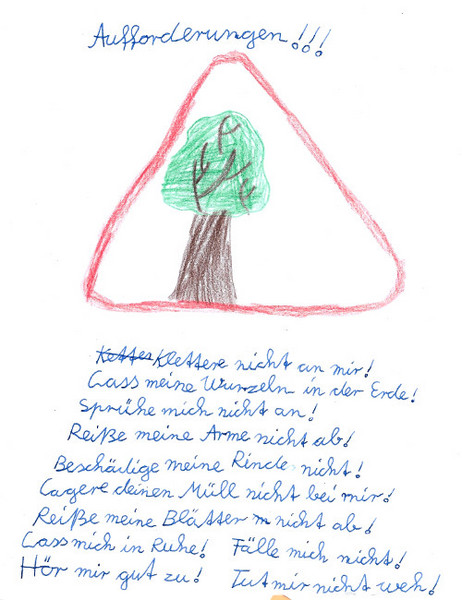 Aufforderungen!!!
Klettere nicht an mir!
Lass meine Wurzeln in der Erde!
Sprühe mich nicht an!
Reiße meine Arme nicht ab!
Beschädige meine Rinde nicht!
Lagere deinen Müll nicht bei mir!
Reiße meine Blätter nicht ab!
Lass mich in Ruhe! Fälle mich nicht!
Hör mir gut zu! Tut mir nicht weh!